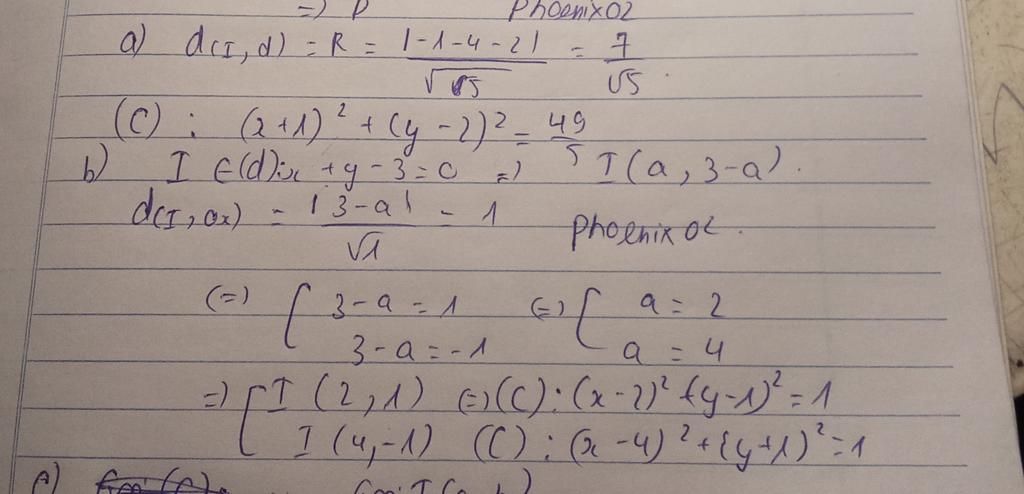 => P Phoenix02
a) d(I,d) = R = |-1-4-2| / √5 = 7 / √5.
(C) : (x+1)² + (y-2)² = 49/5
b) I ∈(d): x + y - 3 = 0 => I(a, 3-a).
d(I,0x) = |3-a| / √1 = 1 phoenix02.
(=) [ 3-a = 1 (=) [ a = 2
3-a = -1 a = 4
=> [ I (2,1) (=) (C): (x-2)² + (y-1)² = 1
I (4,-1) (C) : (x-4)² + (y+1)² = 1